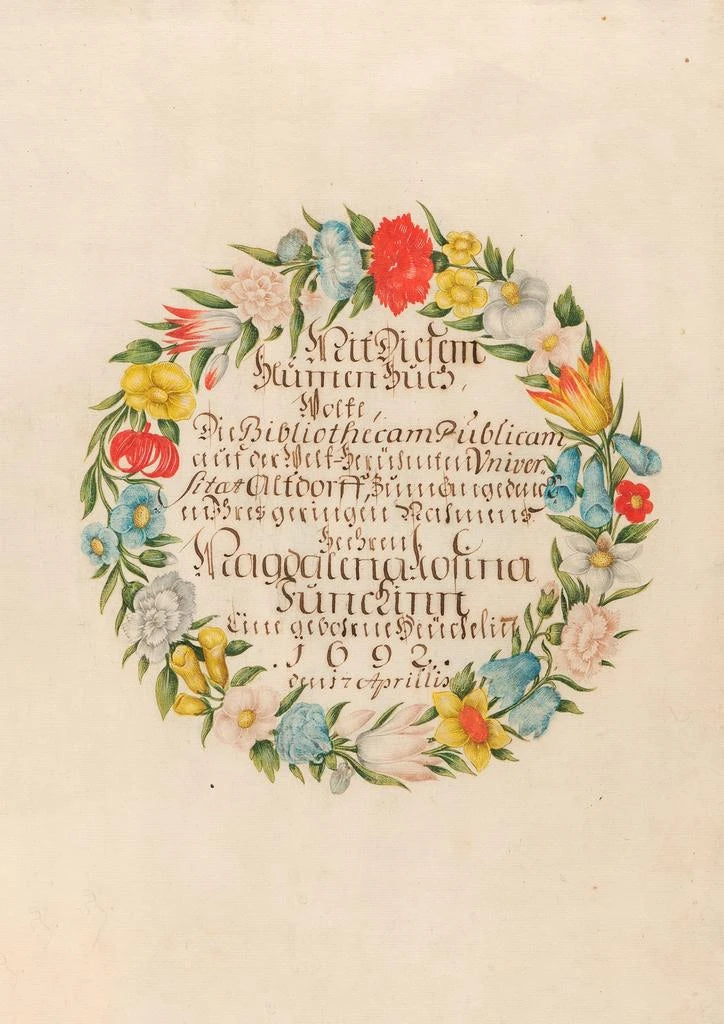 Mit Diesem
Blumen Buch,
Wolte,
Die Bibliothecam Publicam
auf der Welt-berühmten Univer,
sitæt Altdorff, Zum Angedenc
ihres geringen Nahmens
Beehren
Magdalena Rosina
Funckinn
Eine gebohrne
.1692.
den 17 Aprillis